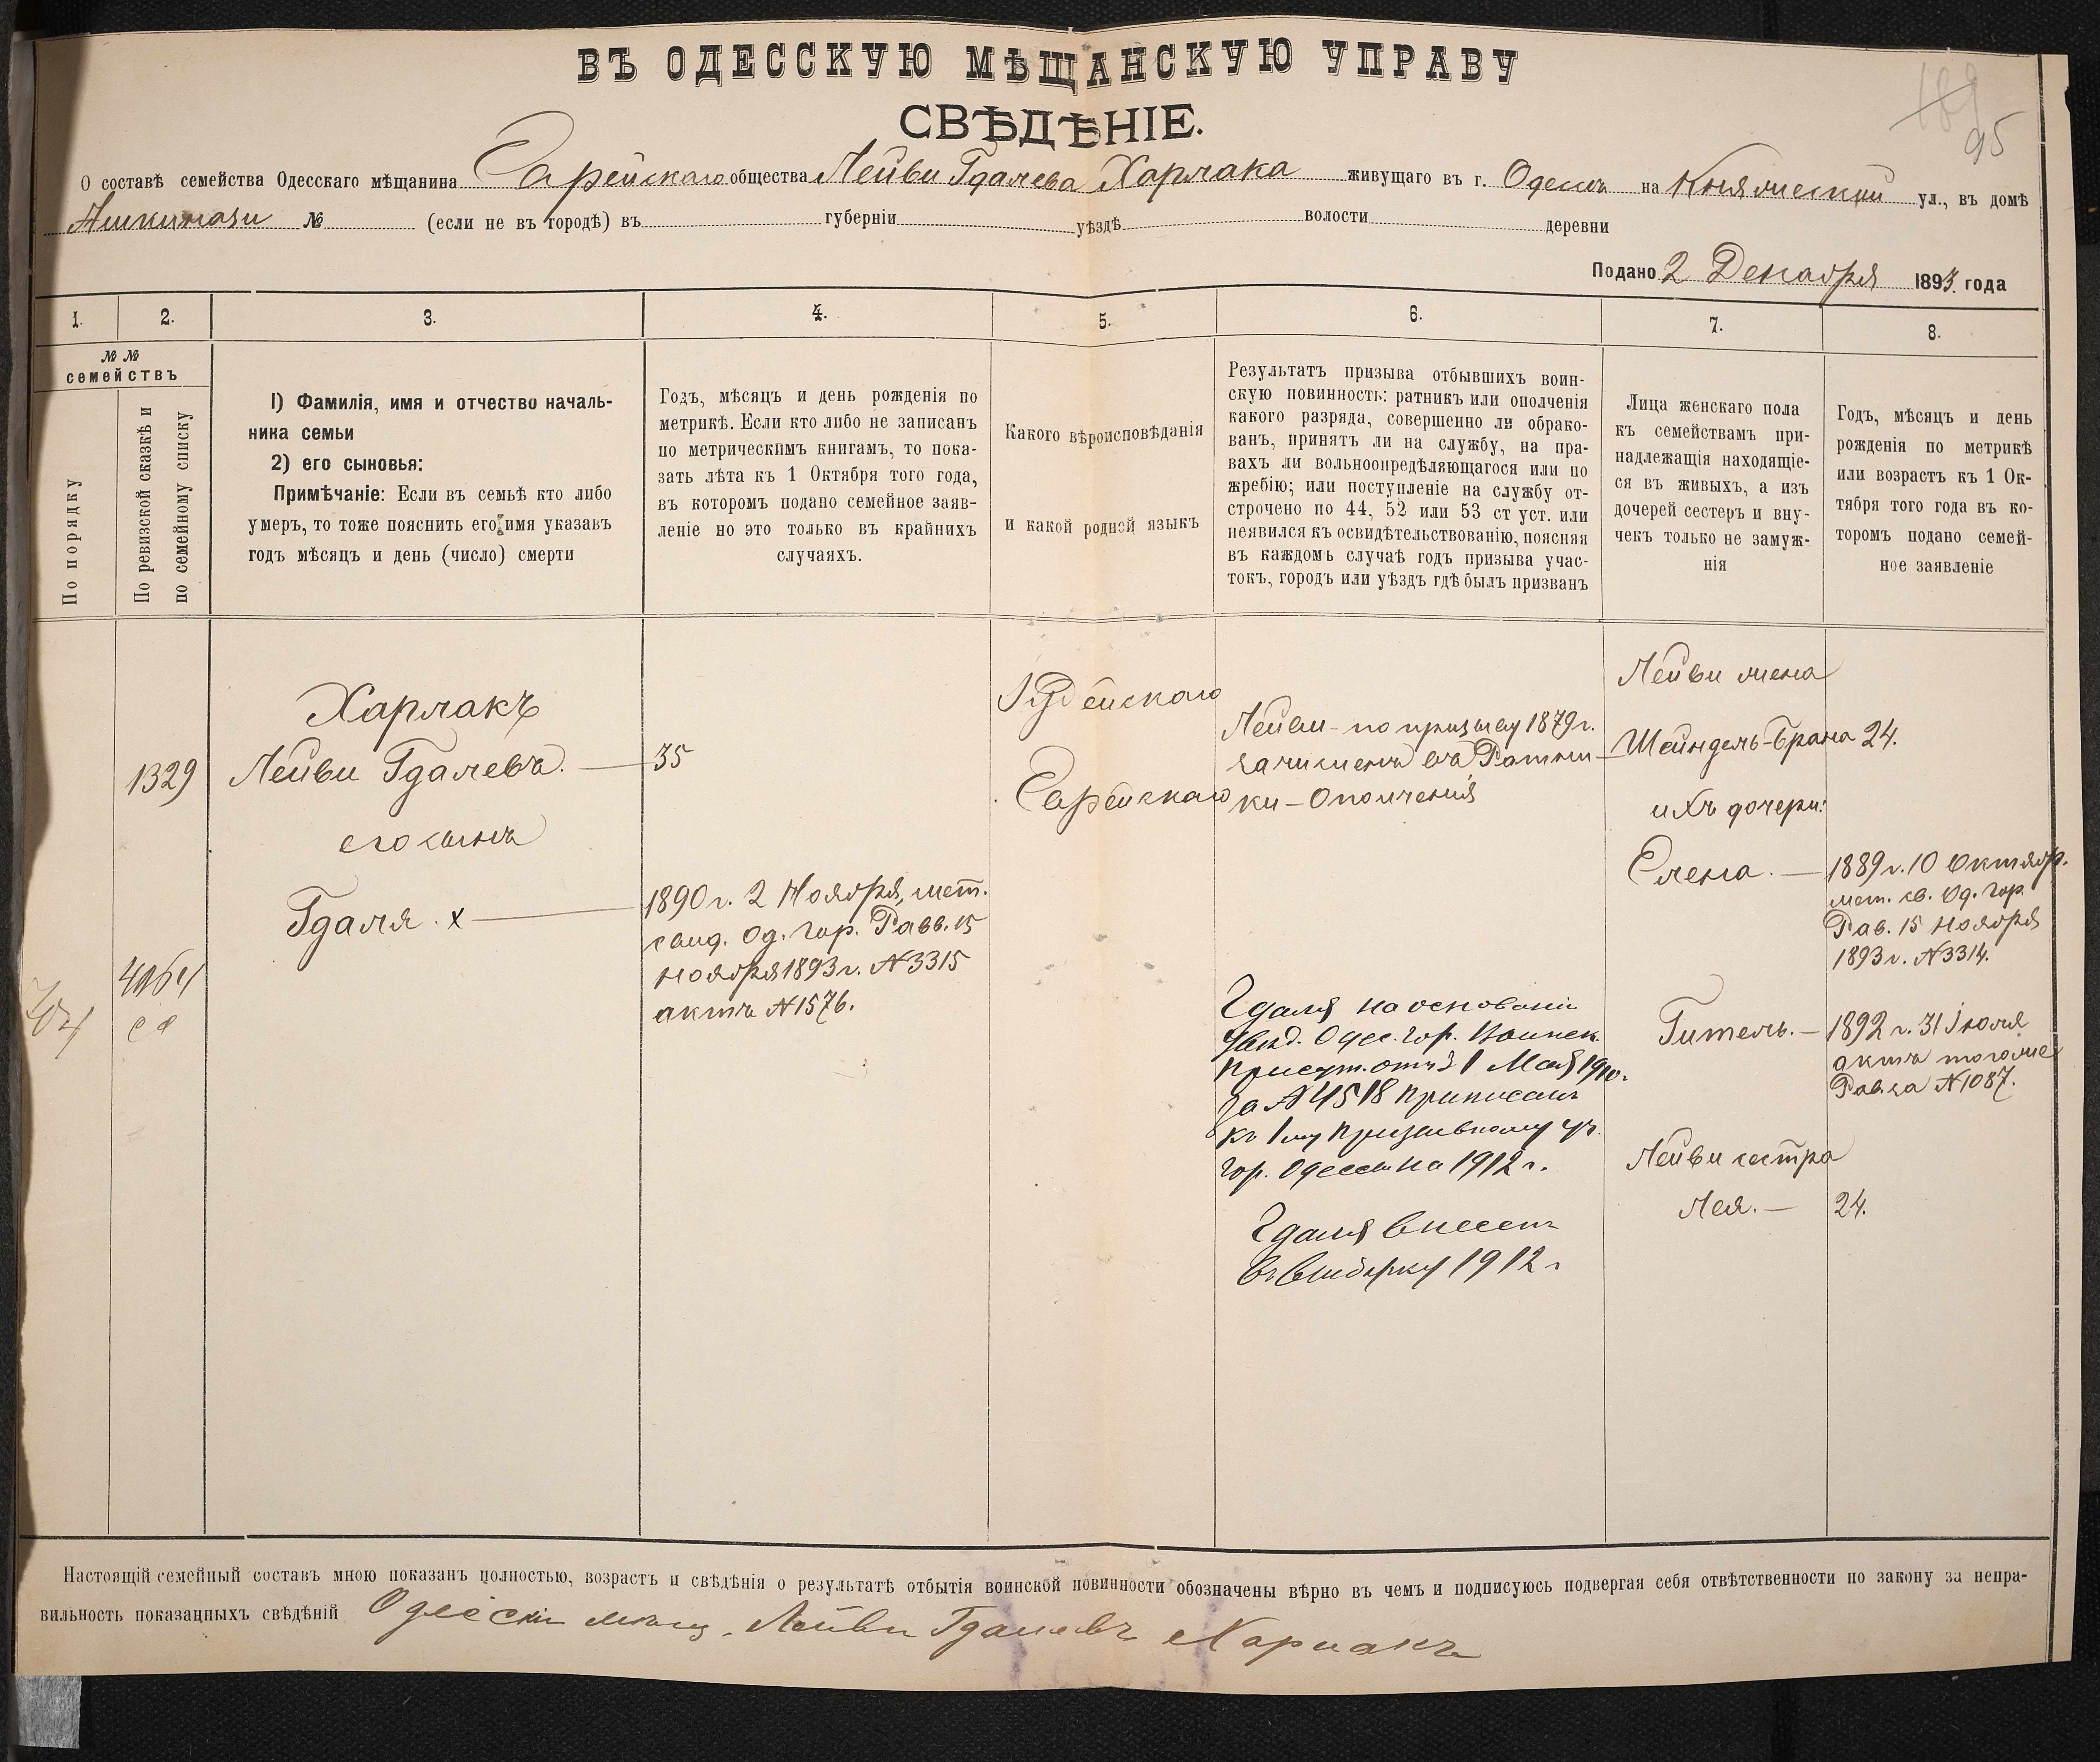 ВЪ ОДЕССКУЮ МѢЩАНСКУЮ УПРАВУ
СВѢДѢНІЕ.
189
95
О составѣ семейства Одесскаго мѣщанина Еврейскаго общества Лейви Гдалева Харлака живущаго въ г. Одессѣ на Княжеской ул., въ домѣ
Ашкинази № (если не въ городѣ) въ губерніи уѣздѣ волости деревни
Подано 2 Декабря 1893 года
1. 2. 3. 4. 5. 6. 7. 8.
№ №
семействъ
По порядку
По ревизской сказкѣ и
по семейному списку
1) Фамилія, имя и отчество началь-
ника семьи
2) его сыновья:
Примѣчаніе: Если въ семьѣ кто либо
умеръ, то тоже пояснить его имя указавъ
годъ мѣсяцъ и день (число) смерти
Годъ, мѣсяцъ и день рожденія по
метрикѣ. Если кто либо не записанъ
по метрическимъ книгамъ, то пока-
зать лѣта къ 1 Октября того года,
въ которомъ подано семейное заяв-
леніе но это только въ крайнихъ
случаяхъ.
Какого вѣроисповѣданія
и какой родной языкъ
Результатъ призыва отбывшихъ воин-
скую повинность: ратникъ или ополченія
какого разряда, совершенно ли обрако-
ванъ, принятъ ли на службу, на пра-
вахъ ли вольноопредѣляющагося или по
жребію; или поступленіе на службу от-
строчено по 44, 52 или 53 ст уст. или
неявился къ освидѣтельствованію, поясняя
въ каждомъ случаѣ годъ призыва учас-
токъ, городъ или уѣздъ гдѣ былъ призванъ
Лица женскаго пола
къ семействамъ при-
надлежащія находящіе-
ся въ живыхъ, а изъ
дочерей сестеръ и вну-
чекъ только не замуж-
нія
Годъ, мѣсяцъ и день
рожденія по метрикѣ
или возрастъ къ 1 Ок-
тября того года въ ко-
торомъ подано семей-
ное заявленіе
1329
Харлакъ
Лейви Гдалевъ. — 35
его сынъ
Гдаля . х —
1890 г. 2 Ноября, мет.
свид. Од. гор. Равв. 15
Ноября 1893 г. №3315
актъ №1576.
Іудейскаго
Еврейскаго
Лейви - по призыву 1879 г.
зачисленъ въ Ратни-
ки - Ополченія
Гдаля на основаніи
увѣд. Одес. гор. Воинск.
Присут. отъ 31 Мая 1910 г.
за №4518 приписанъ
къ 1му призывному уч.
гор. Одессы на 1912 г.
Гдаля внесенъ
въ выборку 1912 г
Лейви жена
Шейндель-Брана 24.
ихъ дочери:
Елена. — 1889 г. 10 Октябр.
мет. св. Од. гор.
Рав. 15 Ноября
1893 г. №3314.
Гитель. — 1892 г. 31 Іюля
актъ тогоже
Рав. за №1087.
Лейви сестра
Лея. — 24.
Настоящій семейный составъ мною показанъ полностью, возрастъ и свѣдѣнія о результатѣ отбытія воинской повинности обозначены вѣрно въ чемъ и подписуюсь подвергая себя отвѣтственности по закону за непра-
вильность показанныхъ свѣдѣній Одесскій мѣщ. Лейви Гдалевъ Харлакъ